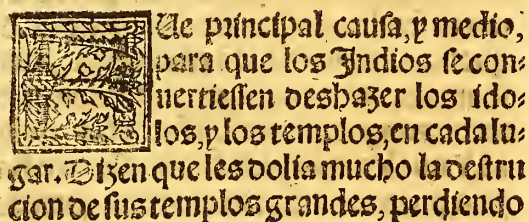 FUe principal cauſa, y medio,
para que los Indios ſe con⸗
uertieſſen deshazer los ido⸗
los, y los templos, en cada lu⸗
gar. Dizen que les dolia mucho la deſtru
cion de ſus templos grandes, perdiendo